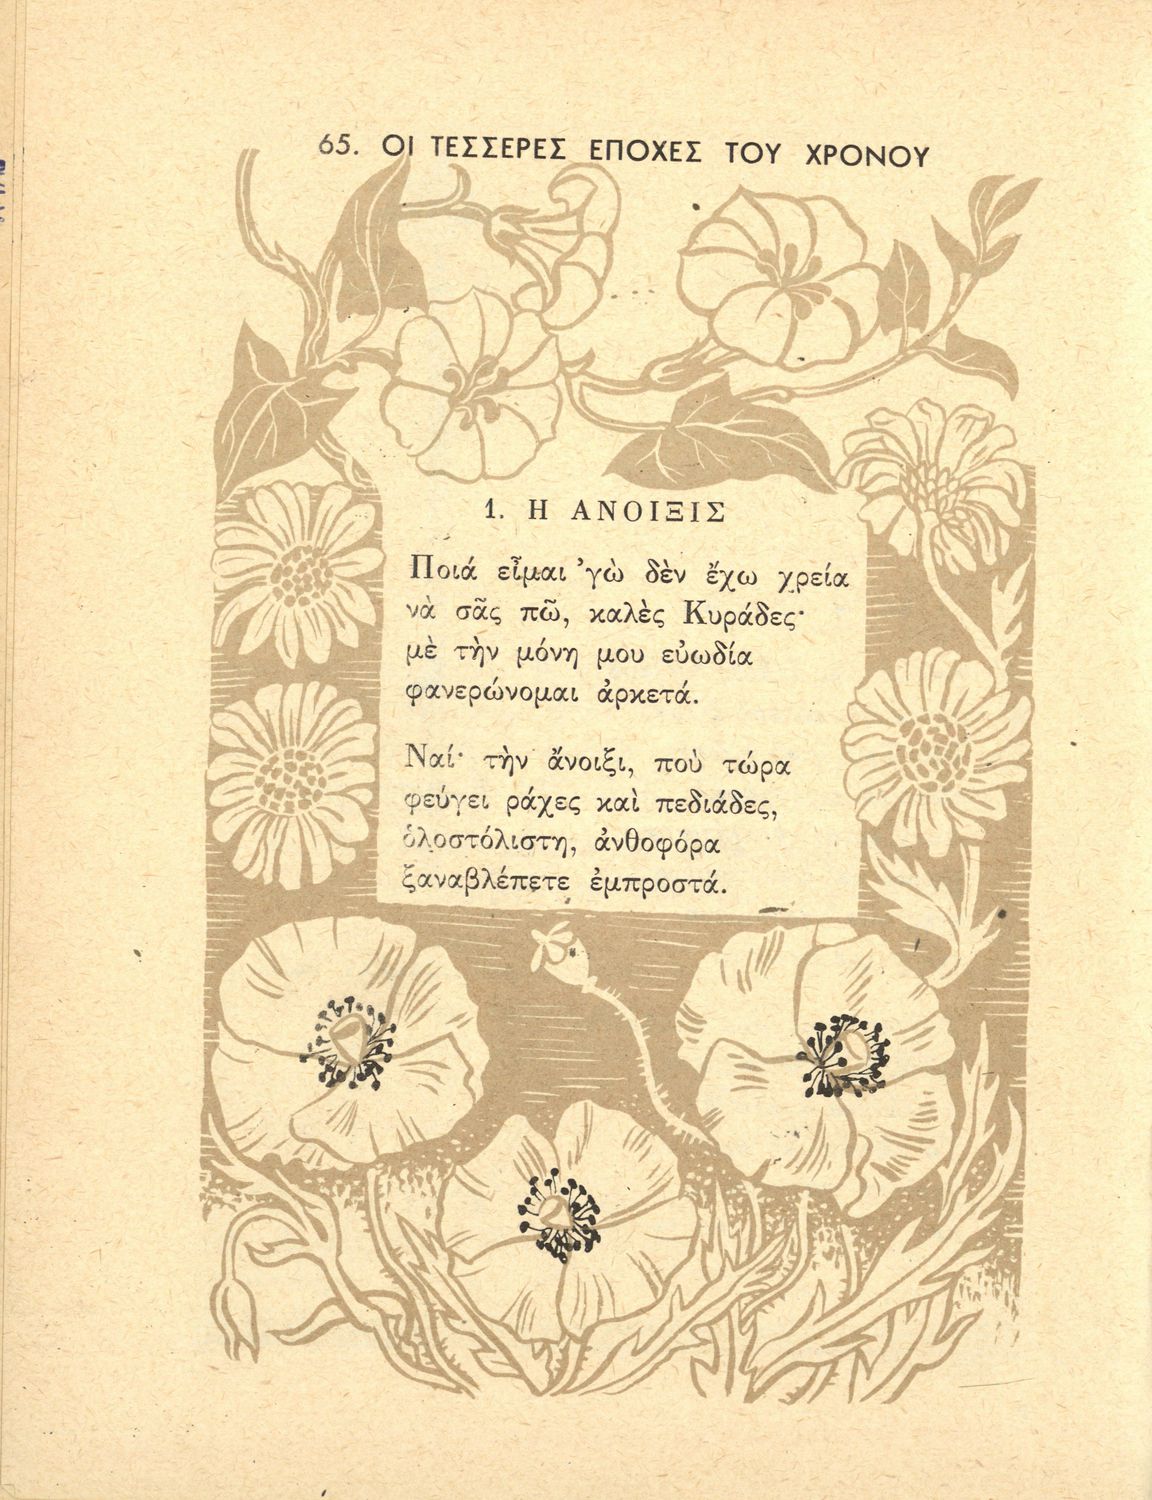 65. ΟΙ ΤΕΣΣΕΡΕΣ ΕΠΟΧΕΣ ΤΟΥ ΧΡΟΝΟΥ
1. Η ΑΝΟΙΞΙΣ
Ποιά εἶμαι ’γὼ δὲν ἔχω χρεία
νὰ σᾶς πῶ, καλὲς Κυράδες·
μὲ τὴν μόνη μου εὐωδία
φανερώνομαι ἀρκετά.
Ναί· τὴν ἄνοιξι, ποὺ τώρα
φεύγει ράχες καὶ πεδιάδες,
ὁλοστόλιστη, ἀνθοφόρα
ξαναβλέπετε ἐμπροστά.